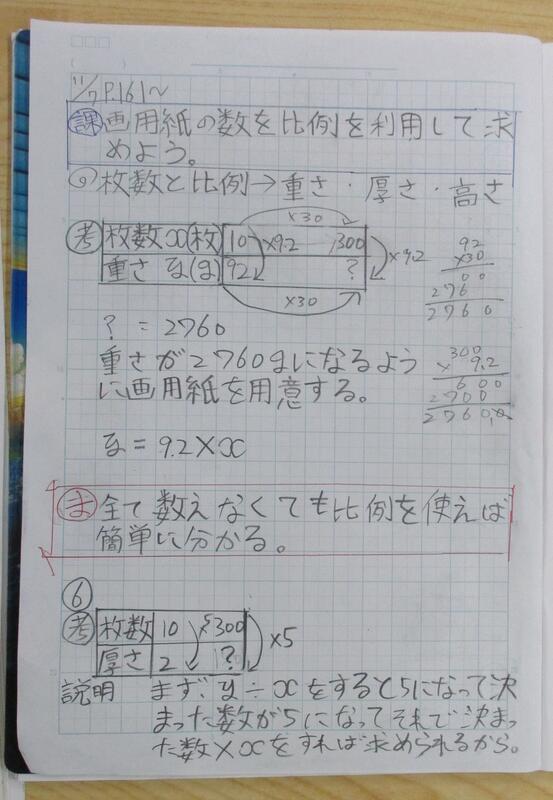 11/7 P.161~
課 画用紙の数を比例を利用して求
めよう。
枚数と比例→重さ・厚さ・高さ
×30
考 枚数x(枚) 10 ×9.2 300 ×9.2
重さ y(g) 92 ?
×30
92
×30
00
276
2760
? = 2760
重さが2760gになるよう
に画用紙を用意する。
300
× 9.2
600
2700
2760.0
y = 9.2×x
ま 全て数えなくても比例を使えば
簡単に分かる。
6
考 枚数 10 ×5 300 ×5
厚さ 2 ?
説明 まず、y÷xをすると5になって決
まった数が5になってそれで決まっ
た数×xをすれば求められるから。